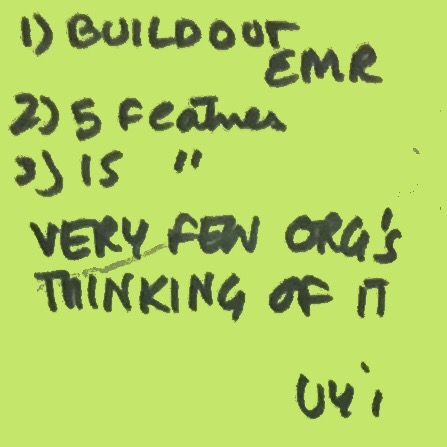 1) BUILDOUT
EMR
2) 5 Features
3) 15 "
VERY FEW ORG's
THINKING OF IT